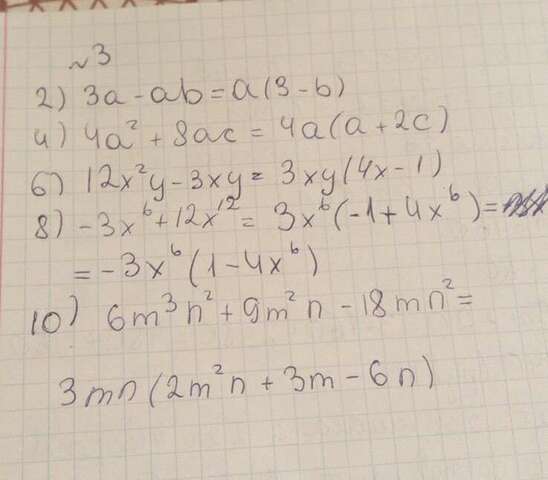 ~3
2) 3a - ab = a(3 - b)
4) 4a² + 8ac = 4a(a + 2c)
6) 12x²y - 3xy = 3xy(4x - 1)
8) -3x⁶ + 12x¹² = 3x⁶(-1 + 4x⁶) =
= -3x⁶(1 - 4x⁶)
10) 6m³n² + 9m²n - 18mn² =
3mn(2m²n + 3m - 6n)